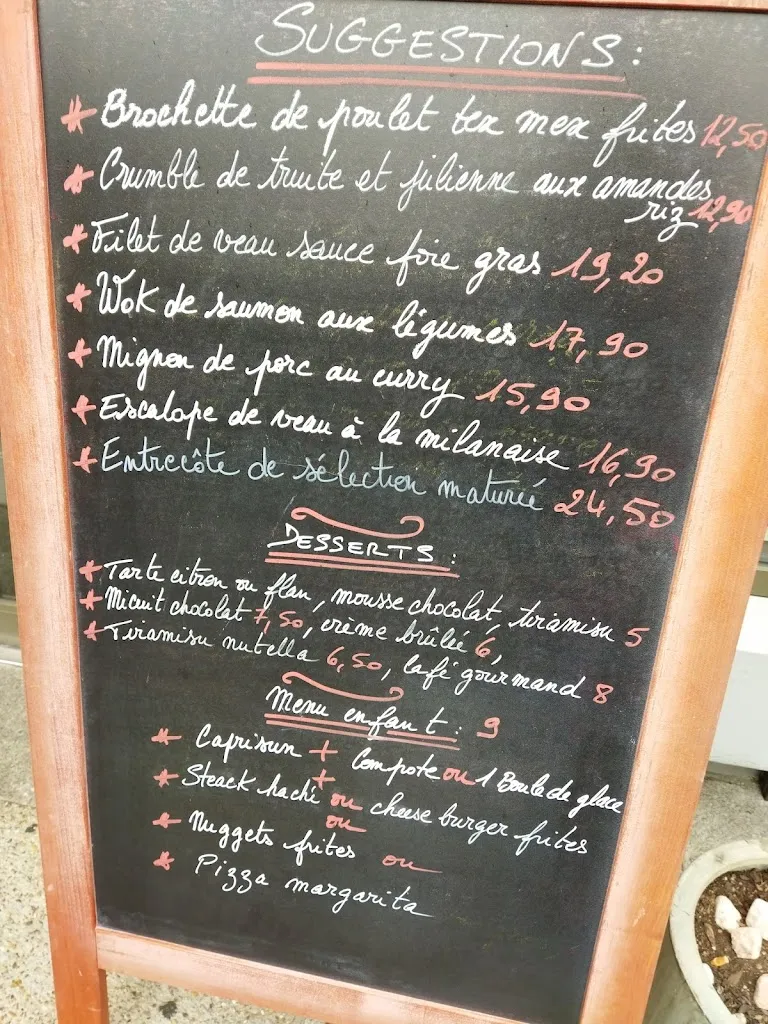 SUGGESTIONS:
* Brochette de poulet tex mex frites 12,50
* Crumble de truite et julienne aux amandes
riz 12,90
* Filet de veau sauce foie gras 19,20
* Wok de saumon aux légumes 17,90
* Mignon de porc au curry 15,90
* Escalope de veau à la milanaise 16,90
* Entrecôte de sélection maturée 24,50
DESSERTS:
* Tarte citron ou flan, mousse chocolat, tiramisu 5
* Micuit chocolat 7,50, crème brûlée 6,
* Tiramisu nutella 6,50, Café gourmand 8
Menu enfant: 9
* Caprisun + Compote ou 1 Boule de glace
+
* Steack haché ou cheese burger frites
ou
* Nuggets frites ou
* Pizza margarita